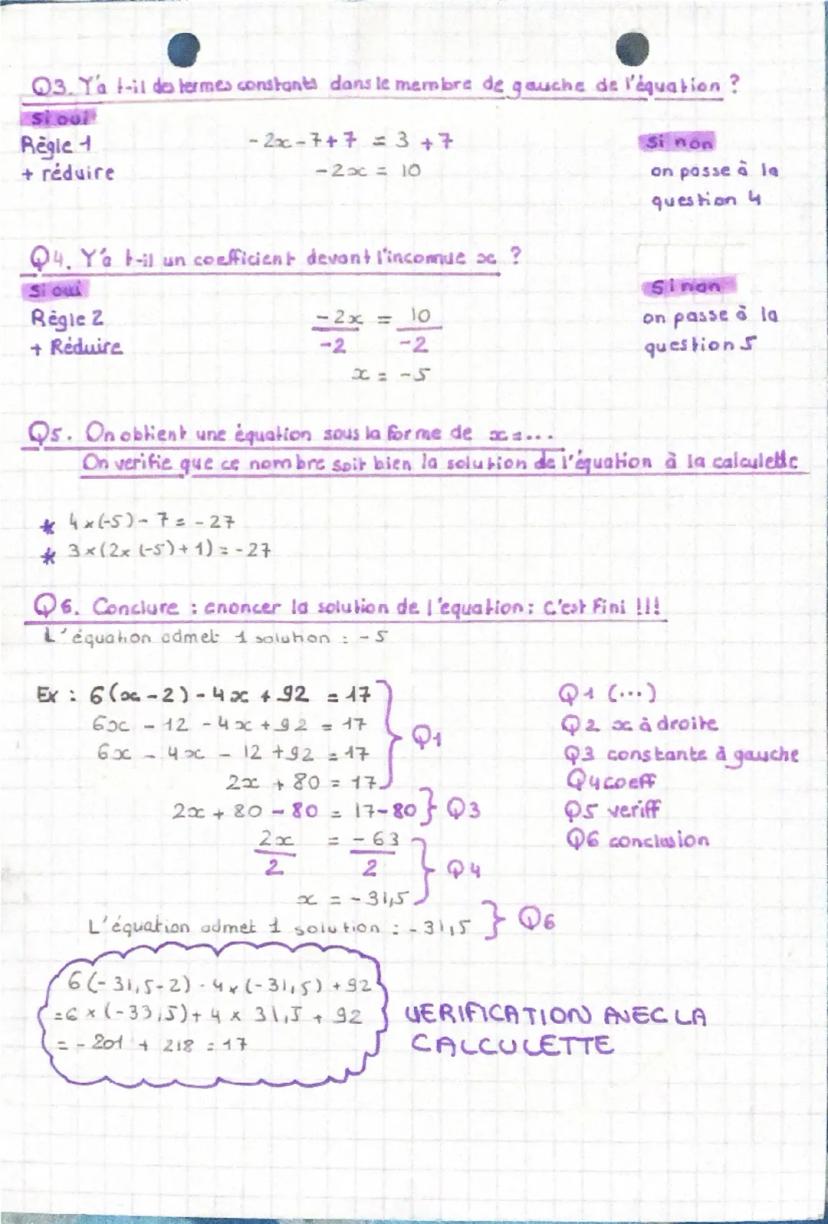 Q3. Y'a t-il des termes constants dans le membre de gauche de l'équation ?
Si oui
Règle 1 -2x-7+7 = 3 +7 Si non
+ réduire -2x = 10 on passe à la
question 4
Q4. Y'a t-il un coefficient devant l'inconnue x ?
Si oui Si non
Règle 2 -2x/-2 = 10/-2 on passe à la
+ Réduire question 5
x = -5
Q5. On obtient une équation sous la forme de x=...
On verifie que ce nombre soit bien la solution de l'équation à la calculette
* 4x(-5)-7 = -27
* 3x(2x(-5)+1) = -27
Q6. Conclure : enoncer la solution de l'equation : C'est Fini !!!
L'équation admet 1 solution : -5
Ex : 6(x-2)-4x+92 = 17 Q1 (...)
6x - 12 - 4x + 92 = 17 Q1 Q2 x à droite
6x - 4x - 12 + 92 = 17 Q3 constante à gauche
2x + 80 = 17 Q4 coeff
2x + 80 - 80 = 17-80 Q3 Q5 veriff
2x/2 = -63/2 Q4 Q6 conclusion
x = -31,5
L'équation admet 1 solution : -31,5 Q6
6(-31,5-2)-4x(-31,5)+92
=6 x (-33,5)+ 4 x 31,5 + 92 VERIFICATION AVEC LA
= -201 + 218 = 17 CALCULETTE